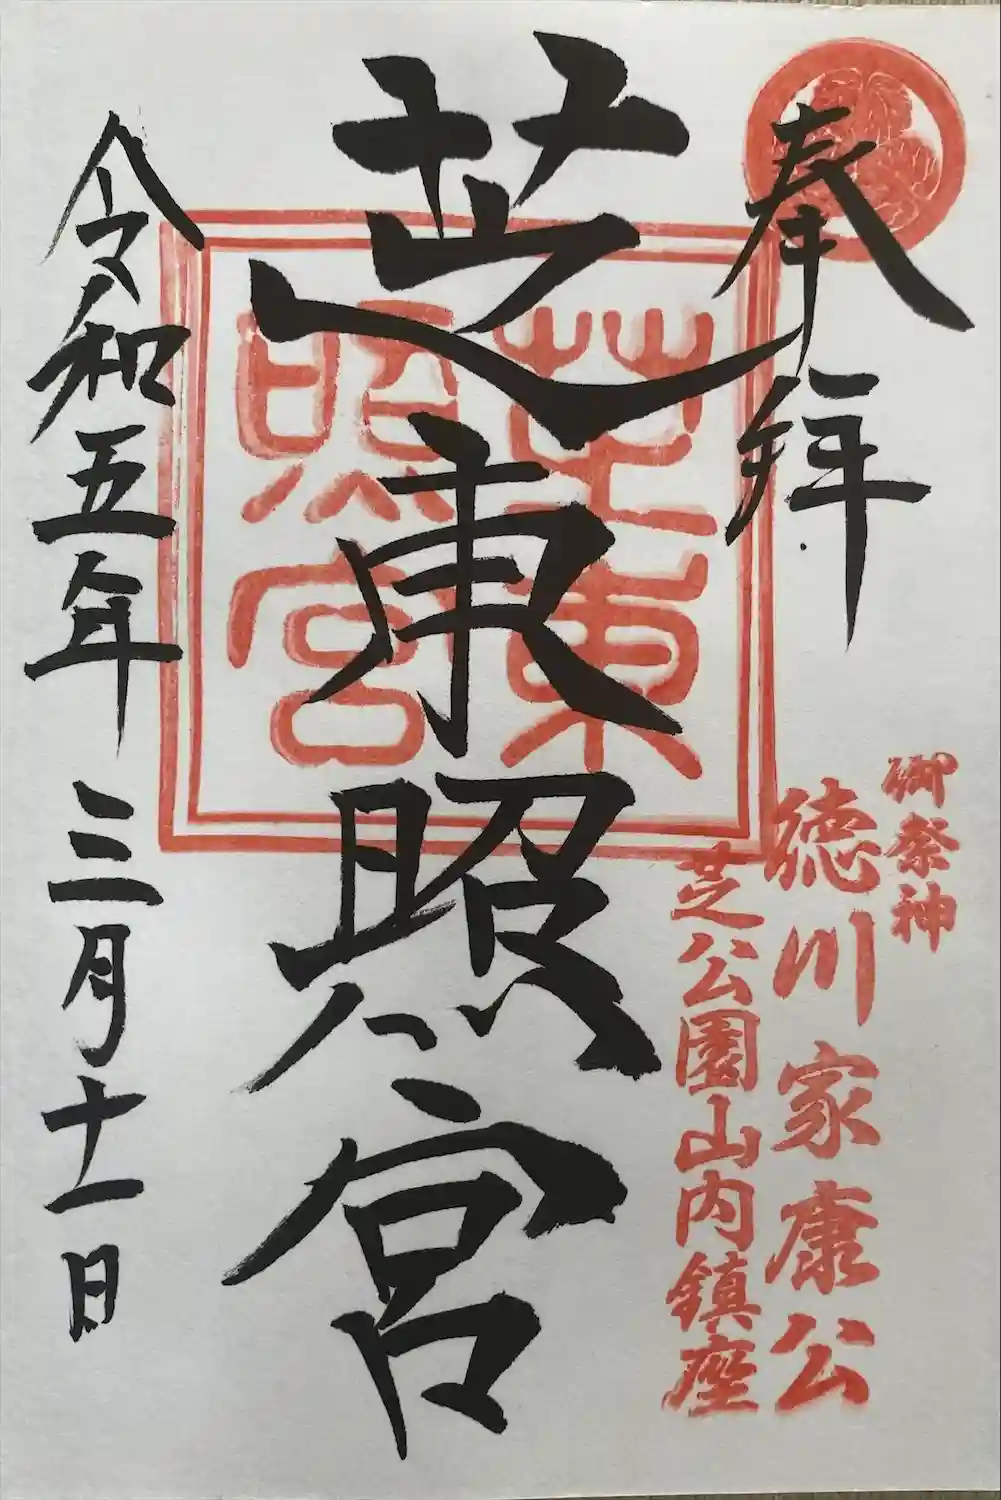 奉拝
御祭神
徳川家康公
芝公園山内鎮座
芝東照宮
芝東
照宮
令和五年三月十一日